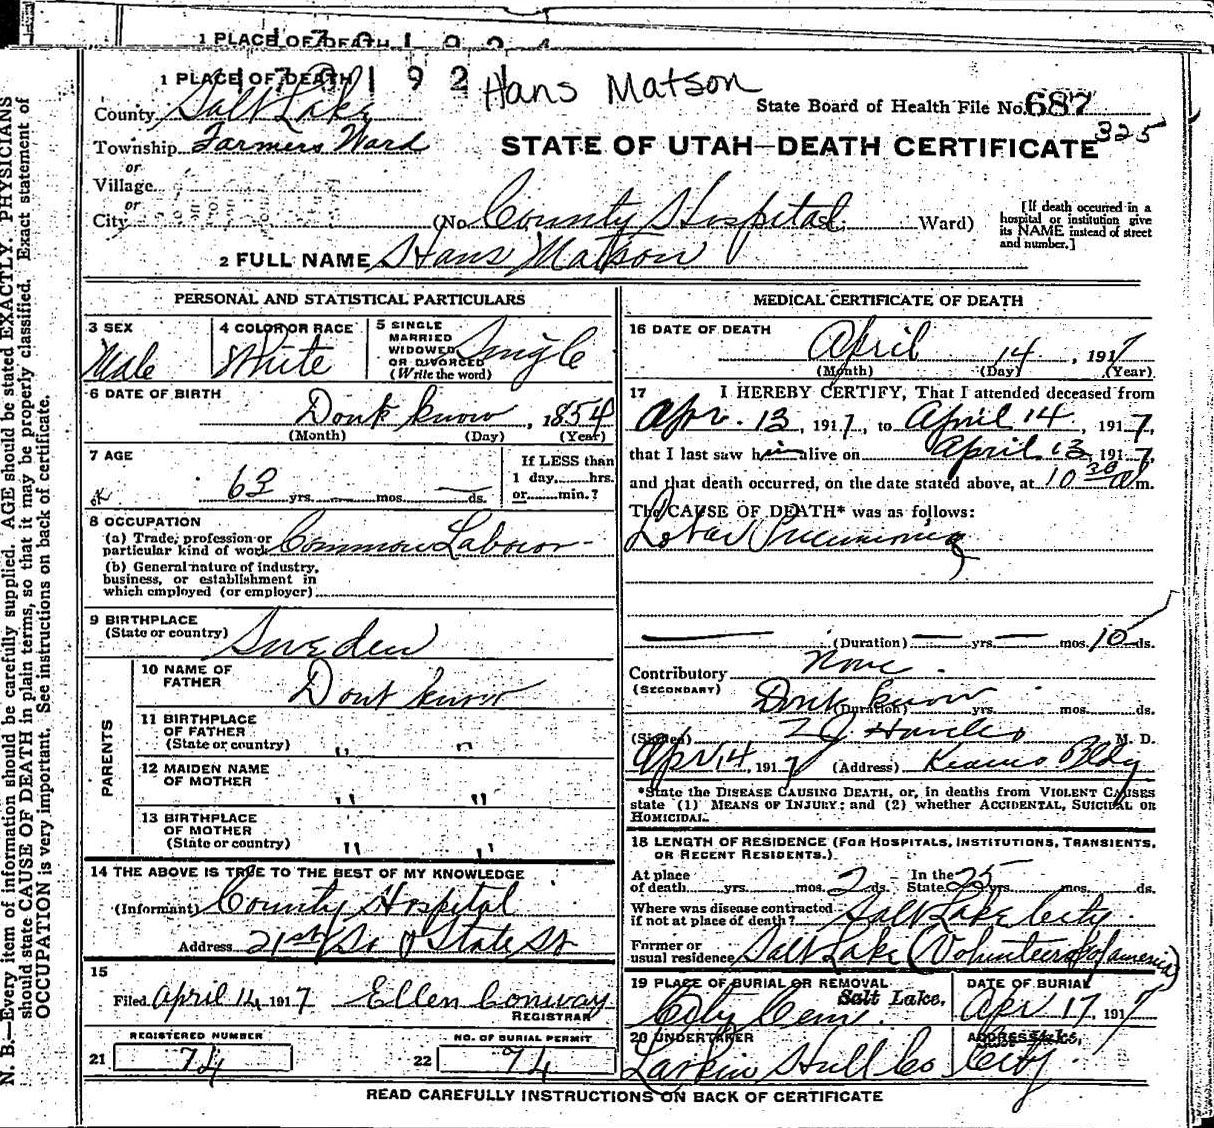 1 PLACE OF DEATH
1 7 0 1 9 2 4
1 PLACE OF DEATH
Hans Matson
County Salt Lake
State Board of Health File No. 687
325
Township Farmers Ward
STATE OF UTAH—DEATH CERTIFICATE
or
Village
or
City
(No. County Hospital St. Ward)
[If death occurred in a hospital or institution give its NAME instead of street and number.]
2 FULL NAME Hans Matson
PERSONAL AND STATISTICAL PARTICULARS
3 SEX
Male
4 COLOR OR RACE
White
5 SINGLE MARRIED WIDOWED OR DIVORCED (Write the word)
Single
6 DATE OF BIRTH
Dont know, 1854
(Month) (Day) (Year)
7 AGE
63 yrs. — mos. — ds.
If LESS than
1 day......hrs.
or......min.?
8 OCCUPATION
(a) Trade, profession or particular kind of work Common Labour
(b) General nature of industry, business, or establishment in which employed (or employer)
9 BIRTHPLACE
(State or country) Sweden
PARENTS
10 NAME OF FATHER Dont know
11 BIRTHPLACE OF FATHER (State or country) " "
12 MAIDEN NAME OF MOTHER " "
13 BIRTHPLACE OF MOTHER (State or country) " "
14 THE ABOVE IS TRUE TO THE BEST OF MY KNOWLEDGE
(Informant) County Hospital
Address 21st So & State St
15
Filed April 14, 1917 Ellen Conway
REGISTRAR
REGISTERED NUMBER
21 74
NO. OF BURIAL PERMIT
22 74
MEDICAL CERTIFICATE OF DEATH
16 DATE OF DEATH
April 14, 1917
(Month) (Day) (Year)
17 I HEREBY CERTIFY, That I attended deceased from
Apr. 13, 1917, to April 14, 1917,
that I last saw him alive on April 13, 1917,
and that death occurred, on the date stated above, at 10 30 a m.
The CAUSE OF DEATH* was as follows:
Lobar Pneumonia
(Duration) — yrs. — mos. 10 ds.
Contributory None
(SECONDARY)
Dont know
(Duration) yrs. mos. ds.
(Signed) M. D.
Apr 14, 1917 (Address) Kearns Bldg
*State the DISEASE CAUSING DEATH, or, in deaths from VIOLENT CAUSES state (1) MEANS OF INJURY; and (2) whether ACCIDENTAL, SUICIDAL OR HOMICIDAL.
18 LENGTH OF RESIDENCE (FOR HOSPITALS, INSTITUTIONS, TRANSIENTS, OR RECENT RESIDENTS.)
At place of death......yrs. mos. 2 ds. In the State 25 yrs. mos. ds.
Where was disease contracted if not at place of death? Salt Lake City
Former or usual residence Salt Lake (Volunteers of America)
19 PLACE OF BURIAL OR REMOVAL
Salt Lake.
City Cem.
DATE OF BURIAL
Apr 17, 1917
20 UNDERTAKER
Larkin Hull Co
ADDRESS
City
READ CAREFULLY INSTRUCTIONS ON BACK OF CERTIFICATE
N. B.—Every item of information should be carefully supplied. AGE should be stated EXACTLY. PHYSICIANS
should state CAUSE OF DEATH in plain terms, so that it may be properly classified. Exact statement of
OCCUPATION is very important. See instructions on back of certificate.